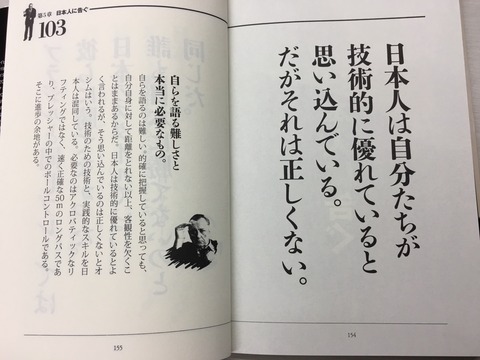 日本人は自分たちが
技術的に優れていると
思い込んでいる。
だがそれは正しくない。
154
第5章 日本人に告ぐ
103
自らを語る難しさと
本当に必要なもの。
自らを語るのは難しい。的確に把握していると思っても、
自分自身に対して距離をとれない以上、客観性を欠くこ
とはままあるからだ。日本人は技術的に優れているとよ
く言われるが、そう思い込んでいるのは正しくないとオ
シムはいう。技術のための技術と、実践的なスキルを日
本人は混同している。必要なのはアクロバティックなリ
フティングではなく、速く正確な50mのロングパスであ
り、プレッシャーの中でのボールコントロールである。
そこに進歩の余地がある。
155